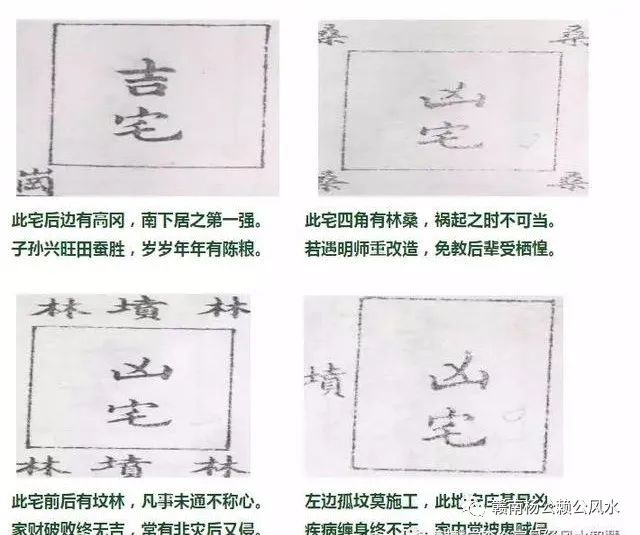 吉
宅
崗
此宅后边有高冈，南下居之第一强。
子孙兴旺田蚕胜，岁岁年年有陈粮。
桑 桑
凶
宅
桑 桑
此宅四角有林桑，祸起之时不可当。
若遇明师重改造，免教后辈受栖惶。
林 墳 林
凶
宅
林 墳 林
此宅前后有坟林，凡事未通不称心。
家财破败终无吉，常有非灾后又侵。
墳
凶
宅
左边孤坟莫施工，此地
疾病缠身终不
赣南杨公赖公风水